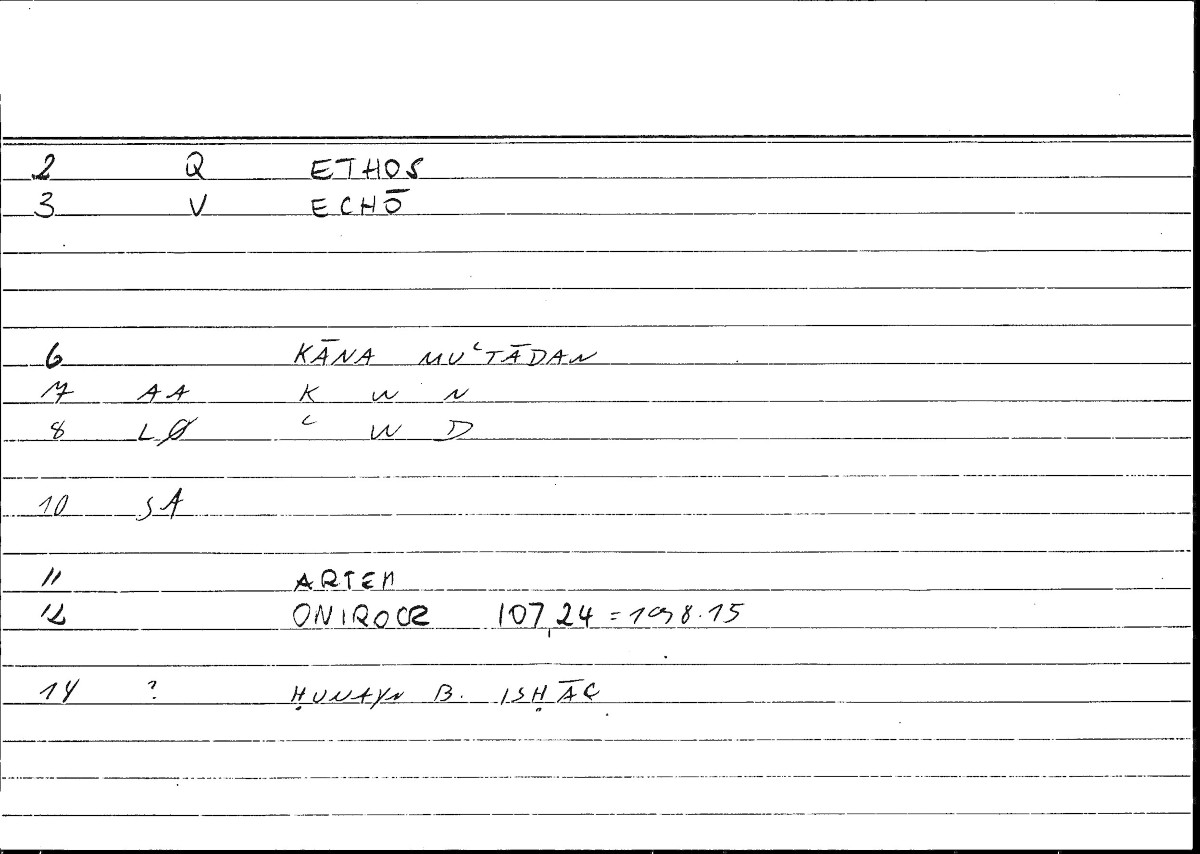 2 Q ETHOS
3 V ECHŌ
6 KĀNA MUʿTĀDAN
7 AA K W N
8 LØ ʿ W D
10 SA
11 ARTEM
12 ONIROCR 107,24 = 198.15
14 ? ḤUNAYN B. ISḤĀQ